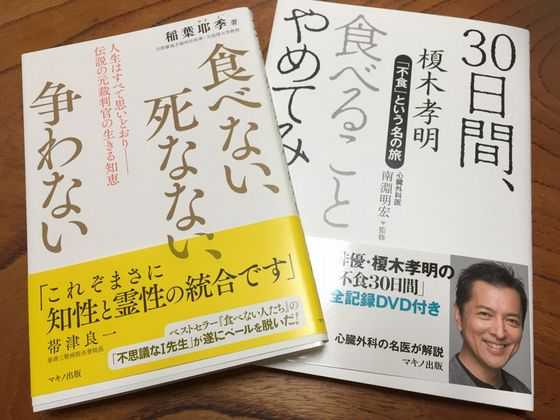 稲葉耶季 著
人生はすべて思いどおり――
伝説の元裁判官の生きる知恵
食べない、
死なない、
争わない
「これぞまさに
知性と霊性の統合です」
帯津良一
帯津三敬病院名誉院長
ベストセラー『食べない人たち』の
「不思議なI先生」が遂にベールを脱いだ!
マキノ出版
30日間、
食べること
やめてみ
榎木孝明
「不食」という名の旅
心臓外科医
南淵明宏・監修
俳優・榎木孝明の
「不食30日間」
全記録DVD付き
心臓外科の名医が解説
マキノ出版